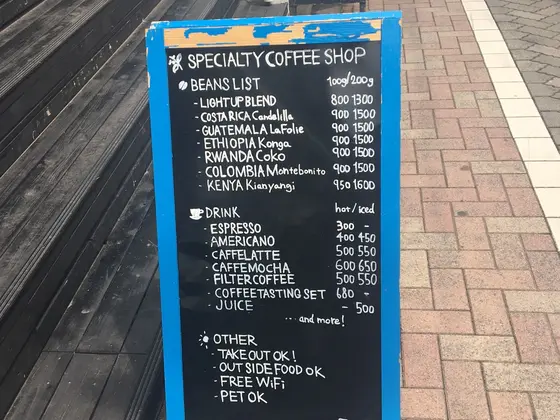 SPECIALTY COFFEE SHOP
BEANS LIST 100g/200g
- LIGHT UP BLEND 800 1300
- COSTA RICA Candelilla 900 1500
- GUATEMALA La Folie 900 1500
- ETHIOPIA Konga 900 1500
- RWANDA Coko 900 1500
- COLOMBIA Montebonito 900 1500
- KENYA Kianyangi 950 1600
DRINK hot/iced
- ESPRESSO 300 -
- AMERICANO 400 450
- CAFFE LATTE 500 550
- CAFFE MOCHA 600 650
- FILTER COFFEE 500 550
- COFFEE TASTING SET 680 -
- JUICE - 500
... and more!
OTHER
- TAKE OUT OK!
- OUT SIDE FOOD OK
- FREE WiFi
- PET OK